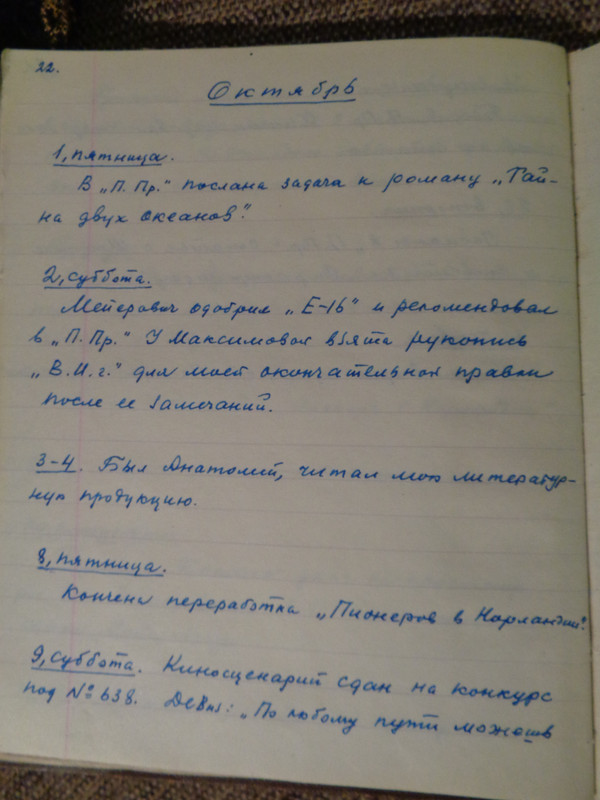 22.
Октябрь
1, пятница.
В „П. Пр.“ послана задача к роману „Тай-
на двух океанов“.
2, суббота.
Мейерович одобрил „Е-16“ и рекомендовал
в „П. Пр.“ У Максимовой взята рукопись
„В.И.г.“ для моей окончательной правки
после ее замечаний.
3-4. Был Анатолий, читал мою литератур-
ную продукцию.
8, пятница.
Кончена переработка „Пионеров в Норландии“.
9, суббота. Киносценарий сдан на конкурс
под № 638. Девиз: „По любому пути можешь